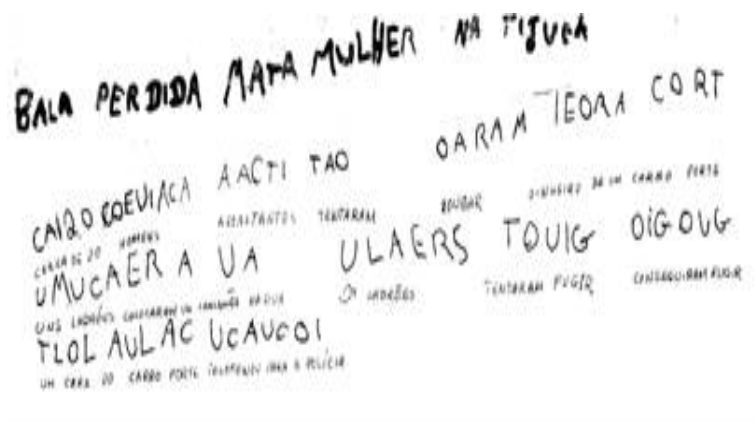 BALA PERDIDA MATA MULHER NA TIJUCA
CAI20 COEVIACA AACTI TAO OARAM TEORA CORT
CERCA DE 20 HOMENS ASSALTANTES TENTARAM ROUBAR DINHEIRO DE UM CARRO FORTE
UMUCAER A UA ULAERS TOUIG OIGOUG
UNS LADRÕES NA RUA OS LADRÕES TENTARAM FUGIR CONSEGUIRAM FUGIR
TLOL AULAC UCAUCOI
UM CARA DO CARRO FORTE PARA A POLÍCIA